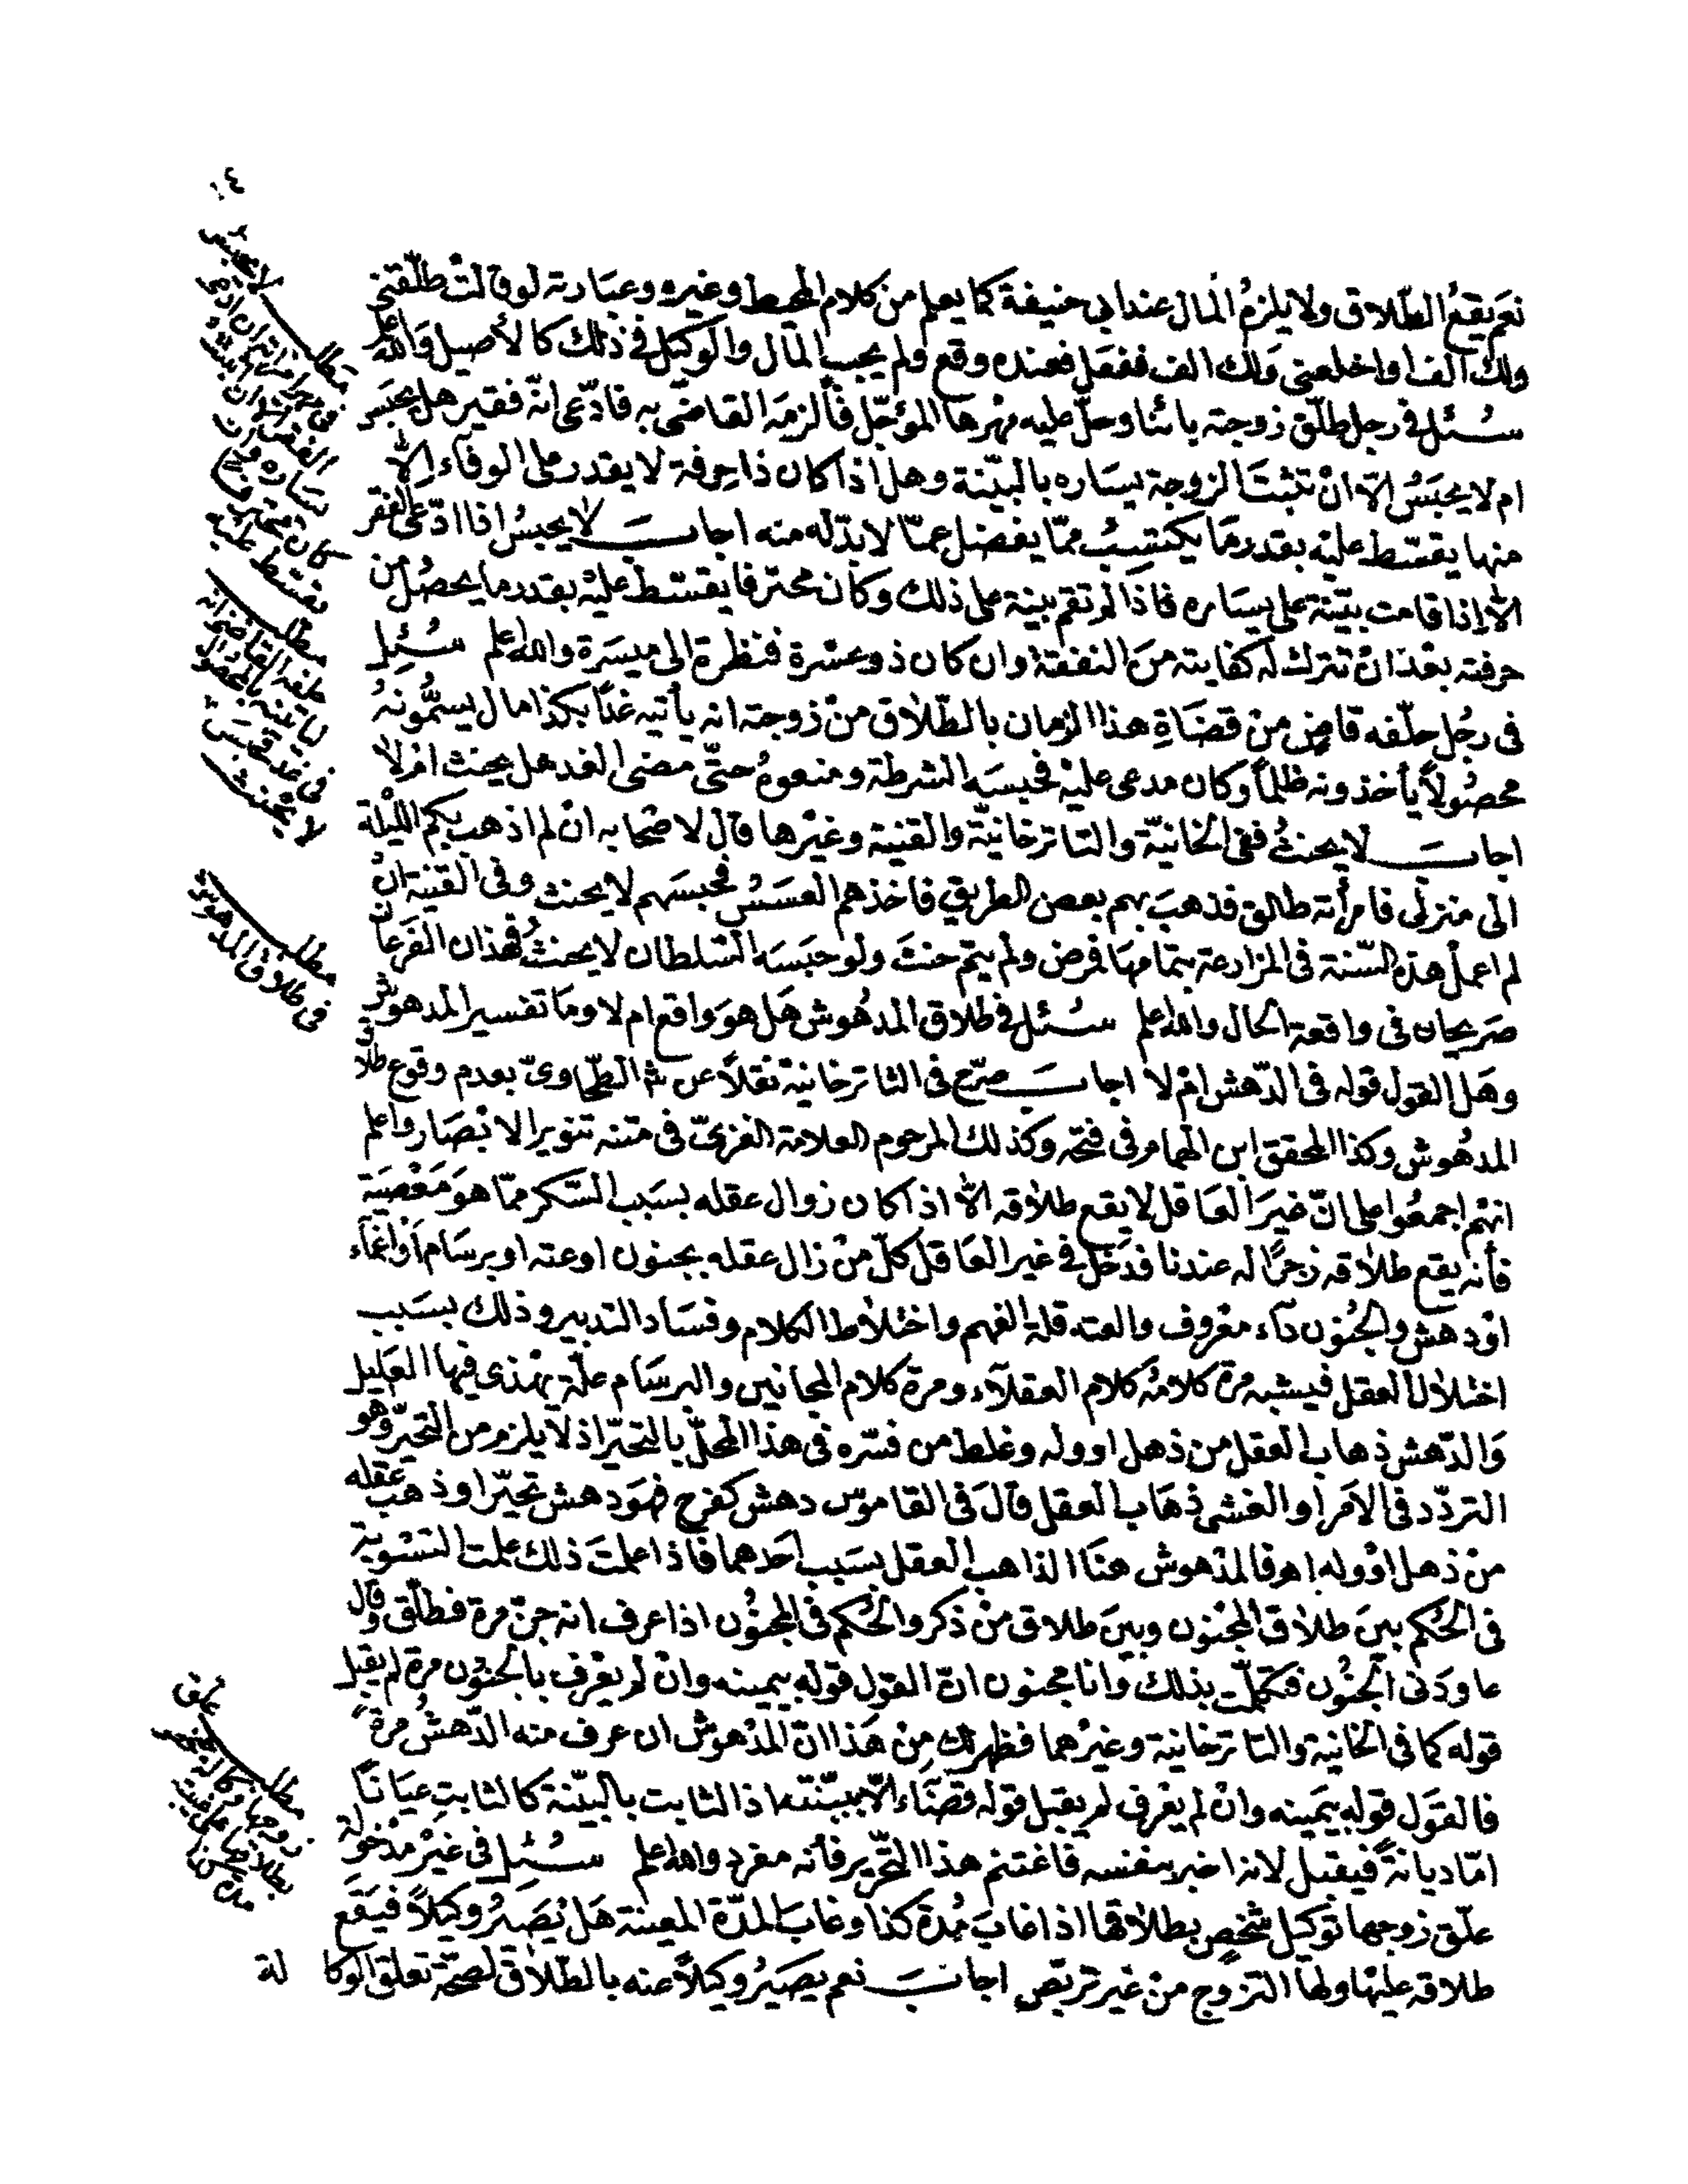 نعم يقع الطلاق ولا يلزم المال عند ابى حنيفة كما يعلم من كلام المحيط وغيره وعبارته لو قالت طلقنى
ولك الف او اخلعنى ولك الف ففعل فعنده وقع ولم يجب المال والوكيل فى ذلك كالأصيل والله اعلم
سئل فى رجل طلق زوجته بائنا وحل عليه مهرها المؤجل فألزمه القاضى به فادعى انه فقير هل يحبس
ام لا يحبس الا ان تثبت الزوجة يساره بالبينة وهل اذا كان ذا حرفة لا يقدر على الوفاء الا
منها يقسط عليه بقدر ما يكتسب مما يفضل عما لا بد له منه اجاب لا يحبس اذا ادعى الفقر
الا إذا قامت بينة على يساره فاذا لم تقم بينة على ذلك وكان محترفا يقسط عليه بقدر ما يحصل من
حرفته بعد ان تترك له كفايته من النفقة وان كان ذو عسرة فنظرة الى ميسرة والله اعلم سئل
فى رجل حلفه قاض من قضاة هذا الزمان بالطلاق من زوجته انه يأتيه غدا بكذا مال يسمونه
محصولا يأخذونه ظلما وكان مدعى عليه فحبسه الشرطة ومنعوه حتى مضى الغد هل يحنث ام لا
اجاب لا يحنث ففى الخانية والتاترخانية والقنية وغيرها قال لاصحابه ان لم اذهب بكم الليلة
الى منزلى فامرأته طالق فذهب بهم بعض الطريق فاخذهم العسس فحبسهم لا يحنث وفى القنية ان
لم اعمل هذه السنة فى المزارعة بتمامها فمرض ولم يتم حنث ولو حبسه السلطان لا يحنث فهذان الفرعان
صريحان فى واقعة الحال والله اعلم سئل فى طلاق المدهوش هل هو واقع ام لا وما تفسير المدهوش
وهل القول قوله فى الدهش ام لا اجاب صرح فى التاترخانية نقلا عن شرح الطحاوى بعدم وقوع طلاق
المدهوش وكذا المحقق ابن الهمام فى فتحه وكذلك المرحوم العلامة الغزى فى متنه تنوير الابصار واعلم
انهم اجمعوا على ان غير العاقل لا يقع طلاقه الا اذا كان زوال عقله بسبب السكر مما هو معصية
فأنه يقع طلاقه زجرا له عندنا فدخل فى غير العاقل كل من زال عقله بجنون او عته او برسام أو اغماء
او دهش والجنون داء معروف والعته قلة الفهم واختلاط الكلام وفساد التدبير وذلك بسبب
اختلال العقل فيشبه مرة كلامه كلام العقلاء ومرة كلام المجانين والبرسام علة يهذى فيها العليل
والدهش ذهاب العقل من ذهل او وله وغلط من فسره فى هذا المحل بالتحير اذ لا يلزم من التحير وهو
التردد فى الامر او الغشى ذهاب العقل قال فى القاموس دهش كفرح فهو دهش تحير او ذهب عقله
من ذهل او وله اهـ فالمدهوش هنا الذاهب العقل بسبب احدهما فاذا علمت ذلك علمت التسوية
فى الحكم بين طلاق المجنون وبين طلاق من ذكر والحكم فى المجنون اذا عرف انه جن مرة فطلق وقال
عاودنى الجنون فتكلمت بذلك وانا مجنون ان القول قوله بيمينه وان لم يعرف بالجنون مرة لم يقبل
قوله كما فى الخانية والتاترخانية وغيرهما فظهر لك من هذا ان المدهوش ان عرف منه الدهش مرة
فالقول قوله بيمينه وان لم يعرف لم يقبل قوله قضاء الا ببينته اذ الثابت بالبينة كالثابت عيانا
اما ديانة فيقبل لانه اخبر بنفسه فاغتنم هذا التحرير فأنه مفرد والله اعلم سئل فى غير مدخولة
علق زوجها توكيل شخص بطلاقها اذا غاب مدة كذا وغاب المدة المعينة هل يصير وكيلا فيقع
طلاقه عليها ولها التزوج من غير تربص اجاب نعم يصير وكيلا عنه بالطلاق لصحة تعلق الوكا لة
مطلب
حلفه القاضى انه
ليأتينه بالمحصول
فى غد فحبس
لا يحنث
مطلب
فى طلاق المدهوش
مطلب